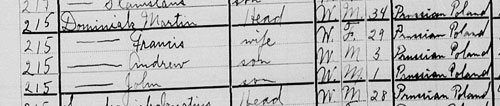 217 — Stanslaus son
215 Dominiak Martin Head W. M. 34 Prussian Poland
215 — Francis wife W. F. 29 Prussian Poland
215 — Andrew son W. M. 3 Prussian Poland
215 — John son W. M. 1 Prussian Poland
215 Head W. M. 28 Prussian Poland